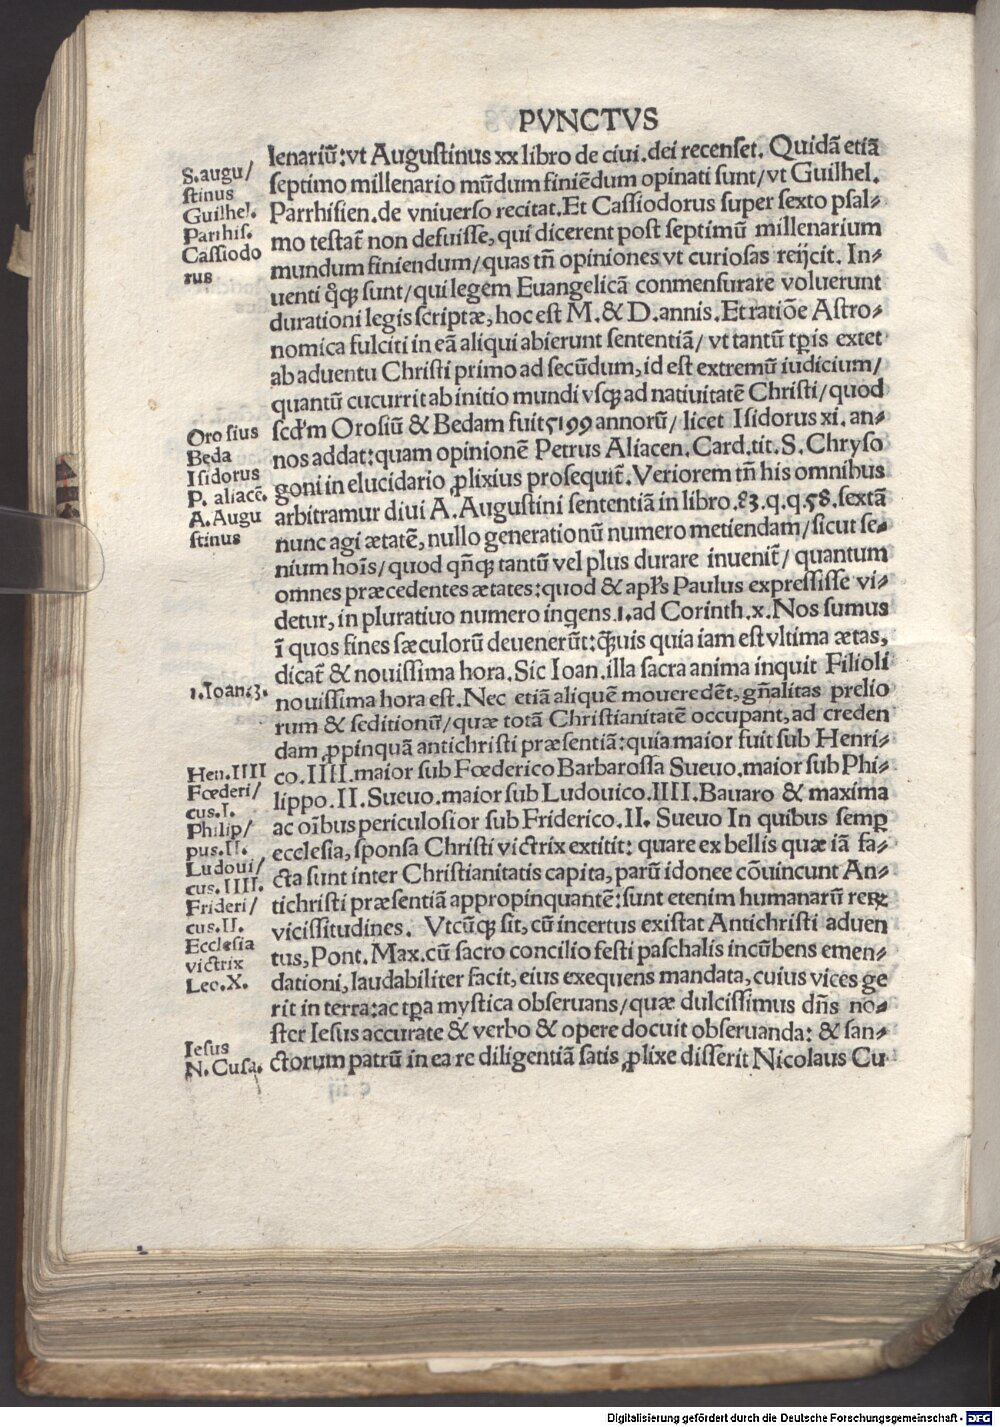 PVNCTVS
lenariū:vt Augustinus xx libro de ciui.dei recenset. Quidā etiā
septimo millenario mūdum finiēdum opinati sunt/vt Guilhel.
Parrhisien.de vniuerso recitat.Et Cassiodorus super sexto psal-
mo testat̃ non defuisse, qui dicerent post septimū millenarium
mundum finiendum/quas tñ opiniones vt curiosas reijcit. In-
uenti q̃q; sunt/qui legem Euangelicā conmensurare voluerunt
durationi legis scriptæ, hoc est M.& D.annis.Et ratiōe Astro-
nomica fulciti in eā aliqui abierunt sententiā/vt tantū tꝑis extet
ab aduentu Christi primo ad secūdum,id est extremū iudicium/
quantū cucurrit ab initio mundi vsq; ad natiuitatē Christi/quod
scd'm Orosiū & Bedam fuit 5199 annorū/ licet Isidorus xi. an-
nos addat:quam opinionē Petrus Aliacen. Card.tit.S.Chryso
goni in elucidario ꝓlixius prosequit̃. Veriorem tñ his omnibus
arbitramur diui A.Augustini sententiā in libro.83.q.q.58.sextā
nunc agi ætatē, nullo generationū numero metiendam/sicut se-
nium hoīs/quod qñq; tantū vel plus durare inuenit̃/quantum
omnes præcedentes ætates:quod & apl's Paulus expressisse vi-
detur, in pluratiuo numero inqens.1.ad Corinth.x.Nos sumus
ī quos fines sæculorū deuenerūt:q̃uis quia iam est vltima ætas,
dicat̃ & nouissima hora. Sic Ioan.illa sacra anima inquit Filioli
nouissima hora est.Nec etiā aliquē moueredēt,gñalitas prelio
rum & seditionū/quæ totā Christianitatē occupant,ad creden
dam ꝓpinquā antichristi præsentiā:quia maior fuit sub Henri-
co.IIII.maior sub Fœderico Barbarossa Sueuo.maior sub Phi-
lippo.II.Sueuo.maior sub Ludouico.IIII.Bauaro & maxima
ac oībus periculosior sub Friderico.II. Sueuo In quibus semꝑ
ecclesia,sponsa Christi victrix extitit: quare ex bellis quæ iā fa-
cta sunt inter Christianitatis capita,parū idonee cōuincunt An-
tichristi præsentiā appropinquantē:sunt etenim humanarū reꝝ
vicissitudines. Vtcūq; sit,cū incertus existat Antichristi aduen
tus,Pont.Max.cū sacro concilio festi paschalis incūbens emen-
dationi,laudabiliter facit,eius exequens mandata,cuius vices ge
rit in terra:ac tꝑa mystica obseruans/quæ dulcissimus dñs no-
ster Iesus accurate & verbo & opere docuit obseruanda: & san-
ctorum patrū in ea re diligentiā satis ꝓlixe disserit Nicolaus Cu
S.augu/
stinus
Guilhel.
Parrhis.
Cassiodo
rus
Orosius
Beda
Isidorus
P. aliacē.
A.Augu
stinus
1.Ioan.3.
Hen.IIII
Fœderi/
cus.I.
Philip/
pus.II.
Ludoui/
cus.IIII.
Frideri/
cus.II.
Ecclesia
victrix
Leo.X.
Iesus
N.Cusa.
Digitalisierung gefördert durch die Deutsche Forschungsgemeinschaft - DFG